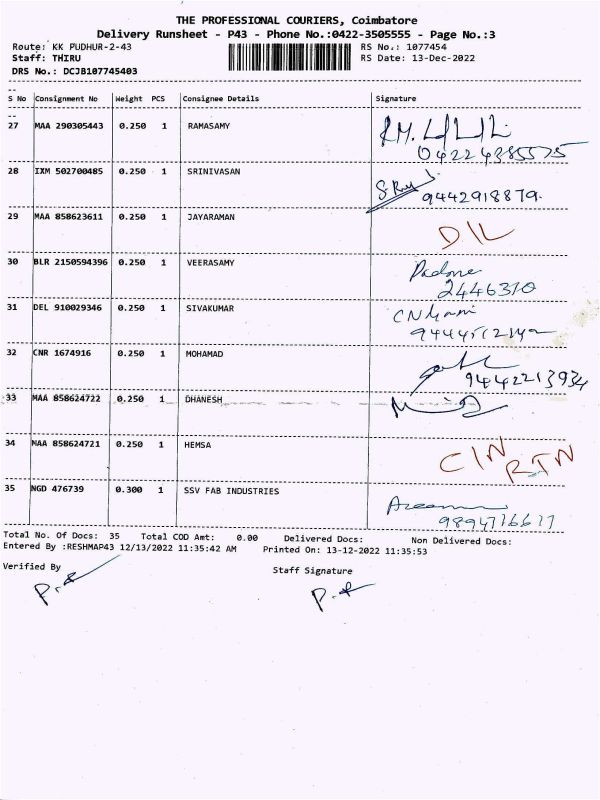 THE PROFESSIONAL COURIERS, Coimbatore
Delivery Runsheet - P43 - Phone No.:0422-3505555 - Page No.:3
Route: KK PUDHUR-2-43 RS No.: 1077454
Staff: THIRU RS Date: 13-Dec-2022
DRS No.: DCJB107745403
S No Consignment No Weight PCS Consignee Details Signature
27 MAA 290305443 0.250 1 RAMASAMY
28 IXM 502700485 0.250 1 SRINIVASAN
9442918879.
29 MAA 858623611 0.250 1 JAYARAMAN
D/L
30 BLR 2150594396 0.250 1 VEERASAMY
2446310
31 DEL 910029346 0.250 1 SIVAKUMAR
32 CNR 1674916 0.250 1 MOHAMAD
9442213934
33 MAA 858624722 0.250 1 DHANESH
34 MAA 858624721 0.250 1 HEMSA
RTN
35 NGD 476739 0.300 1 SSV FAB INDUSTRIES
Total No. Of Docs: 35 Total COD Amt: 0.00 Delivered Docs: Non Delivered Docs:
Entered By :RESHMAP43 12/13/2022 11:35:42 AM Printed On: 13-12-2022 11:35:53
Verified By Staff Signature